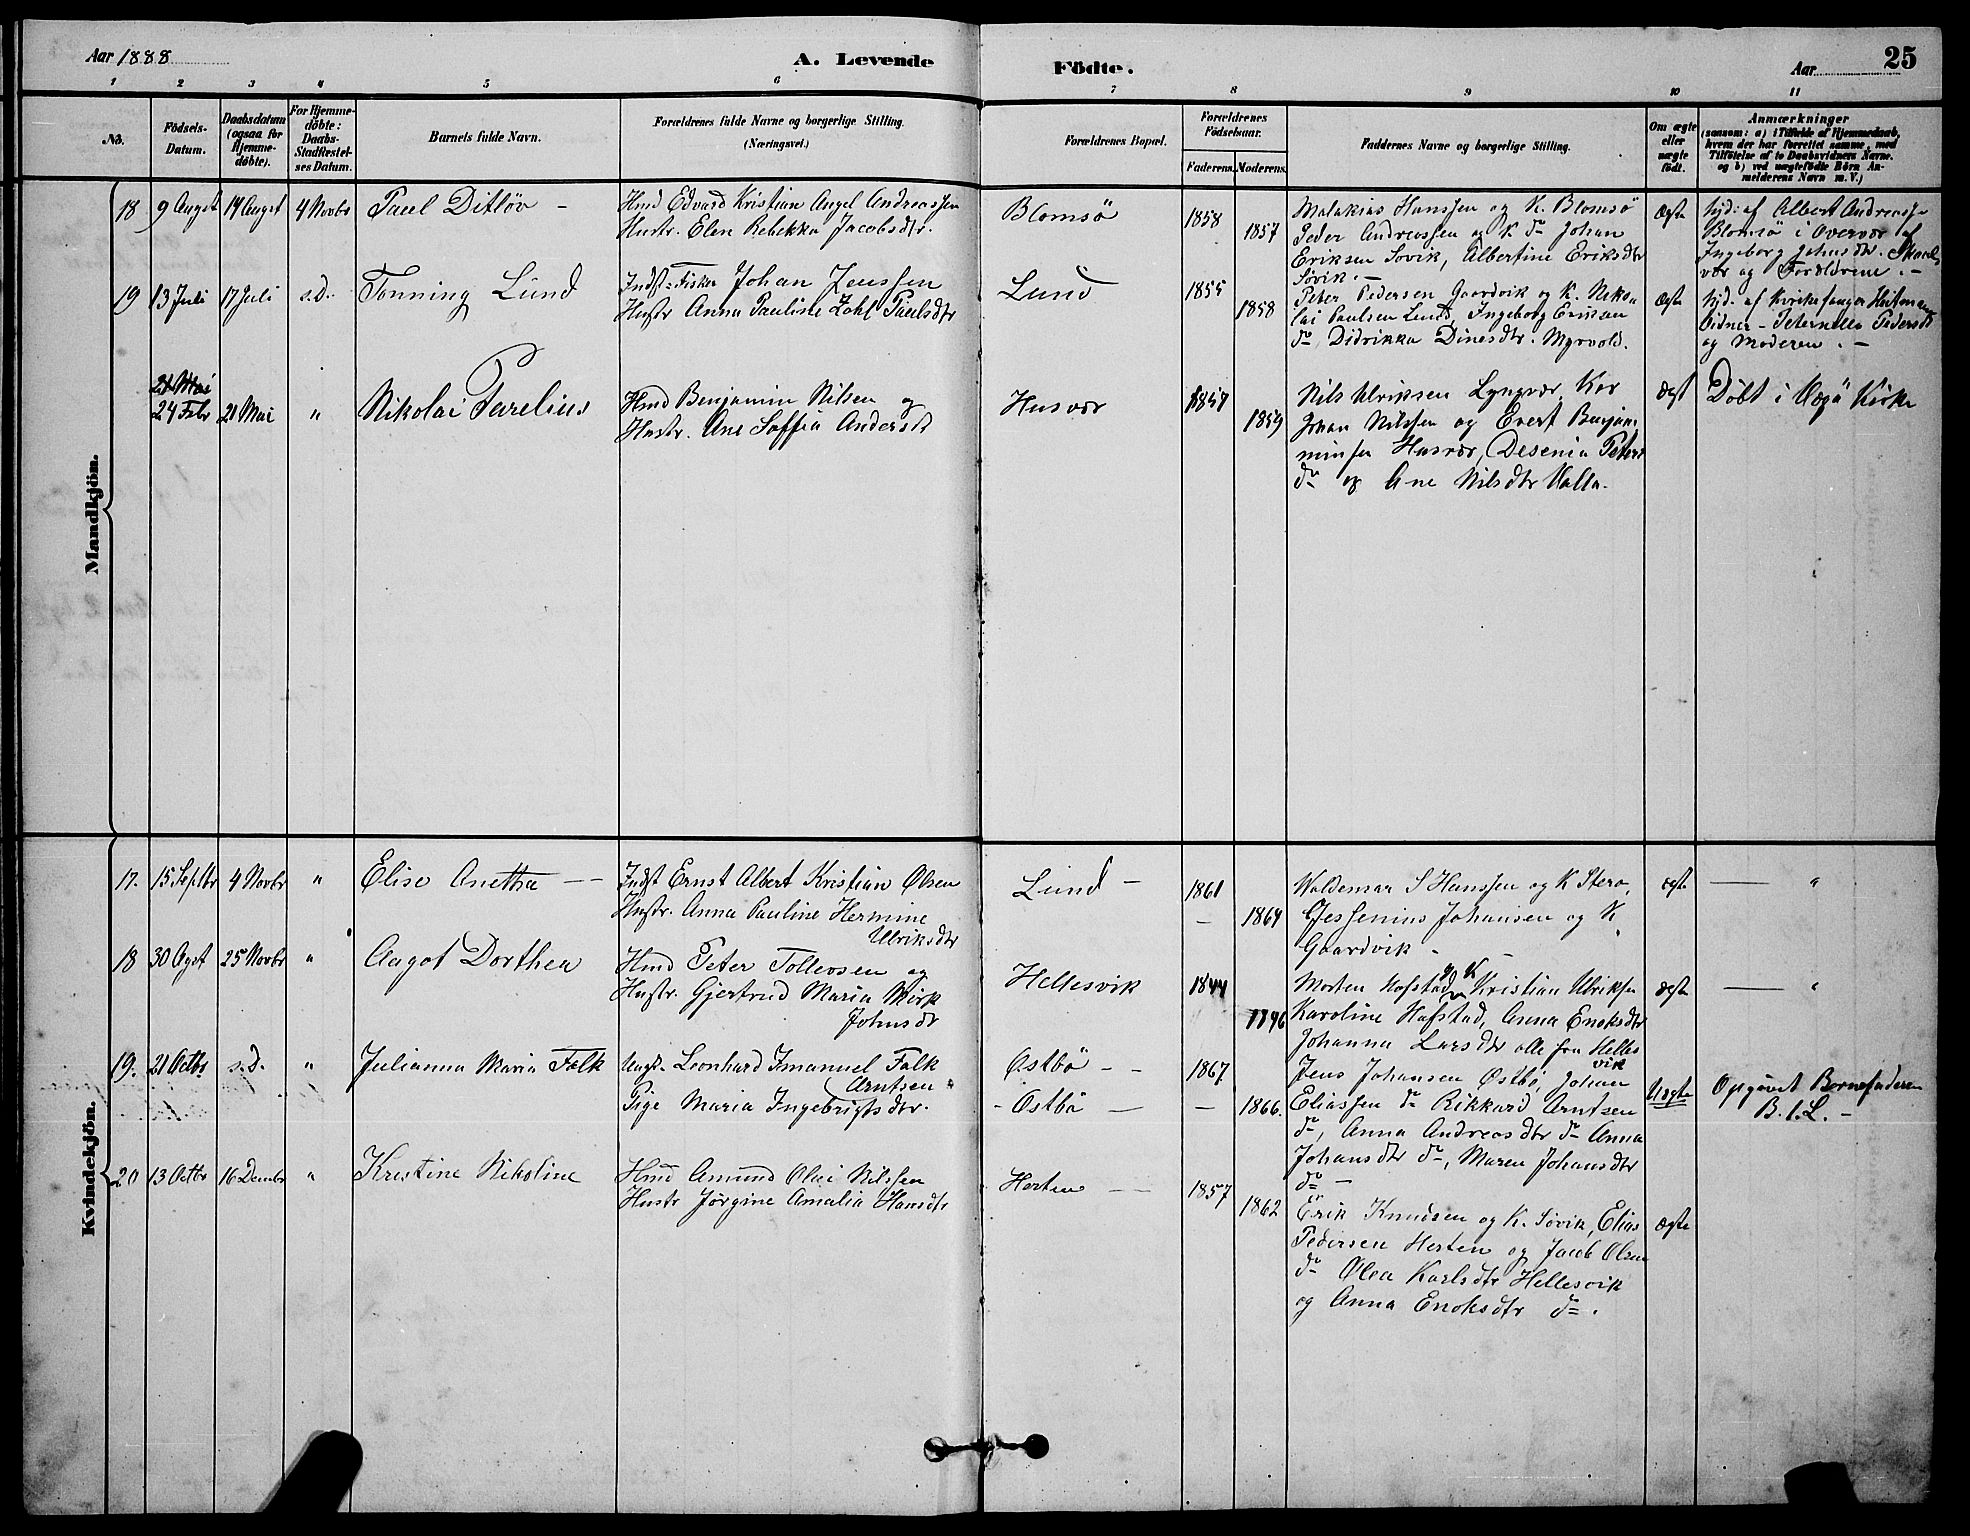 Aar 1888
A. Levende
Fødte.
Aar
25
1 2 3 4 5 6 7 8 9 10 11
No.
Fødsels-
Datum.
Daabsdatum
(ogsaa for
Hjemme-
døbte).
For Hjemme-
døbte:
Daabs-
Stadfæstel-
ses Datum.
Barnets fulde Navn.
Forældrenes fulde Navne og borgerlige Stilling.
(Næringsvei.)
Forældrenes Bopæl.
Forældrenes
Fødselsaar.
Faderens.
Moderens.
Faddernes Navne og borgerlige Stilling.
Om ægte
eller
uægte
født.
Anmærkninger
(saasom: a) i Tilfælde af Hjemmedaab,
hvem der har forrettet samme, med
Tilføielse af to Daabsvidners Navne.
og b) ved uægtefødte Børn An-
melderens Navn m. V.)
Mandkjøn.
18
9 Augst
14 Augst
4 Novbr
Paul Ditløv -
Hmd Edvard Kristian Angel Andreassen
Hustr. Elen Rebekka Jacobsdtr.
Blomsö
1858
1857
Malakias Hanssen og K. Blomsö
Peder Andreassen og K do Johan
Eriksen Sövik, Albertine Eriksdtr
Sövik. -
Ægte
Hjd: af Albert Andreass-
Blomsö i Overvær af
Ingeborg Johnsdtr.
vær og Forældrene. -
19
13 Juli
17 Juli
s.d.
Tonning Lund
Indst-Fisker Johan Jenssen
Hustr Anna Pauline Zahl Paulsdtr
Lund
1855
1858
Peter Pedersen Gaardvik og K. Niko
lai Paulsen Lund, Ingeborg Eriksen
do, Didrikka Dinesdtr. Myrvold.
Ægte
Hjd. af
Vidner - Peternella Pedersd
og Moderen. -
21 Mai
24 Febr
21 Mai
"
Nikolai Parelius
Hmd Benjamin Nilsen og
Hustr. Ane Soffia Andersd
Husvær
1857
1859
Nils Ulriksen Lyngvær, Kar
Johan Nilssen og Evert Benja
minsen Husvær, Desenia Peters
do og Ane Nilsdtr Valla.
Ægt
Döbt i Vegö Kirke
Kvindekjøn.
17.
15 Septbr
4 Novbr
"
Elise Anetha -
Indst Ernst Albert Kristian Olsen
Hustr. Anna Pauline Hermine
Ulriksdtr
Lund -
1861
-
1864
Waldemar S Hanssen og K Stero,
Jessenius Johansen og K
Gaardvik -
ægte
- "
18
30 Agst
25 Novbr
"
Aagot Dorthea
Hmd Peter Tollevsen og
Hustr. Gjertrud Maria Mörk
Johnsdtr
Hellesvik
1844
Morten Hofstad og K Kristian Ulriksen
Karoline Hofstad, Anna Enoksdtr
Johanna Larsdtr alle fra Helles
vik
ægte
- "
19.
21 Octbr
s.d.
"
Julianna Maria Falk
Ungk. Leonhard Imanuel Falk
Arntsen
Pige Maria Ingebrigtsdtr.
Östbö - -
- Östbö -
1867
-
1866.
Jens Johansen Östbö, Johan
Eliassen do Rikkard Arntsen
do, Anna Andreasdtr do Anna
Johansdtr do, Maren Johansdtr
do -
Uægte
Opgivet Barnefaderen
B. 1. L. -
20
13 Octbr
16 Decmbr
"
Kristine Nikoline
Hmd Amund Olai Nilssen
Hustr Jørgine Amalia Hansdtr
Horten - -
1857
1862
Erik Knudsen og K. Sövik, Elias
Pedersen Horten og Jacob Olsen
do Olea Karlsdtr Hellesvik
og Anna Enoksdtr do.
ægte